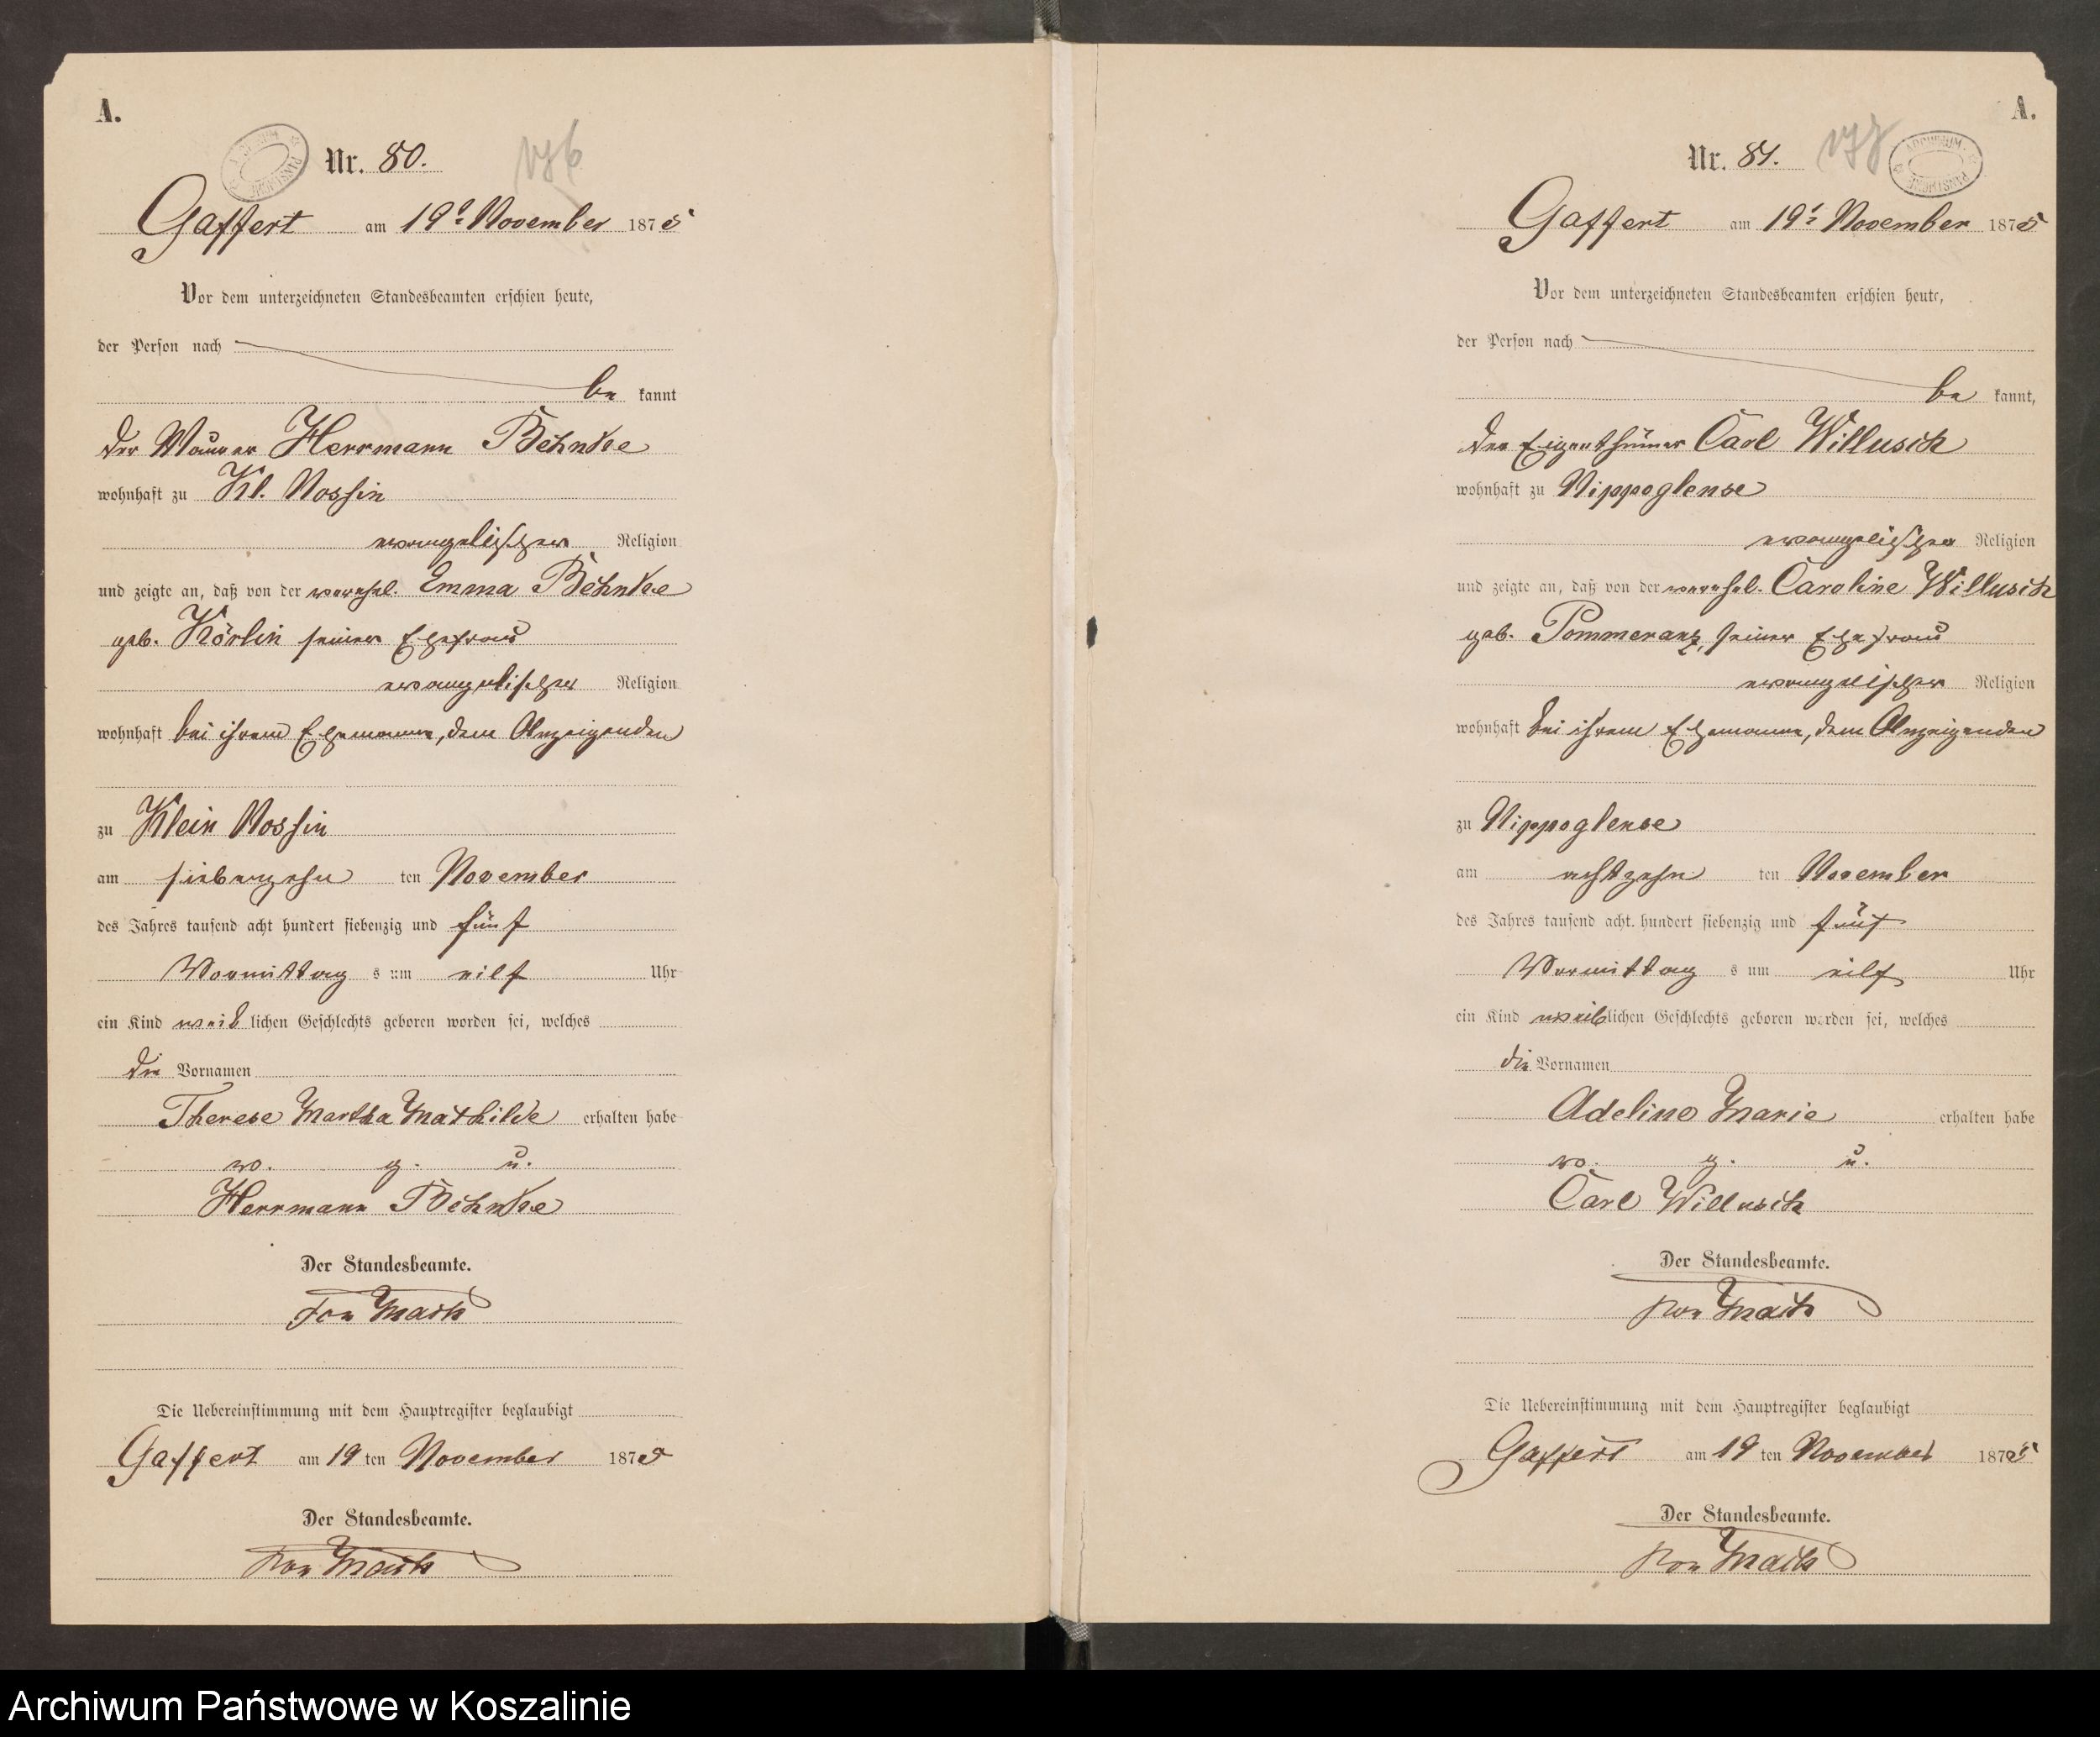 A.
Nr. 80.
Gaffert am 19t November 1875
Vor dem unterzeichneten Standesbeamten erschien heute,
der Person nach
be kannt
der Maurer Herrmann Behnke
wohnhaft zu Kl. Nossin
evangelischer Religion
und zeigte an, daß von der verehel. Emma Behnke
geb. Körlin seiner Ehefrau
evangelischer Religion
wohnhaft bei ihrem Ehemanne, dem Anzeigenden
zu Klein Nossin
am siebenzehn ten November
des Jahres tausend acht hundert siebenzig und fünf
Vormittag s um eilf Uhr
ein Kind weib lichen Geschlechts geboren worden sei, welches
die Vornamen
Therese Martha Mathilde erhalten habe
v. g. u.
Herrmann Behnke
Der Standesbeamte.
von
Die Uebereinstimmung mit dem Hauptregister beglaubigt
Gaffert am 19 ten November 1875
Der Standesbeamte.
von
A.
Nr. 81.
ARCHIWUM PAŃSTWOWE
Gaffert am 19t November 1875
Vor dem unterzeichneten Standesbeamten erschien heute,
der Person nach
be kannt,
der Eigenthümer Carl Willusch
wohnhaft zu Nippoglense
evangelischer Religion
und zeigte an, daß von der verehel. Caroline Willusch
geb. Pommeranz, seiner Ehefrau
evangelischer Religion
wohnhaft bei ihrem Ehemanne, dem Anzeigenden
zu Nippoglense
am achtzehn ten November
des Jahres tausend acht hundert siebenzig und fünf
Vormittag s um eilf Uhr
ein Kind weiblichen Geschlechts geboren worden sei, welches
die Vornamen
Adeline Marie erhalten habe
v. g. u.
Carl Willusch
Der Standesbeamte.
von
Die Uebereinstimmung mit dem Hauptregister beglaubigt
Gaffert am 19 ten November 1875
Der Standesbeamte.
von
Archiwum Państwowe w Koszalinie